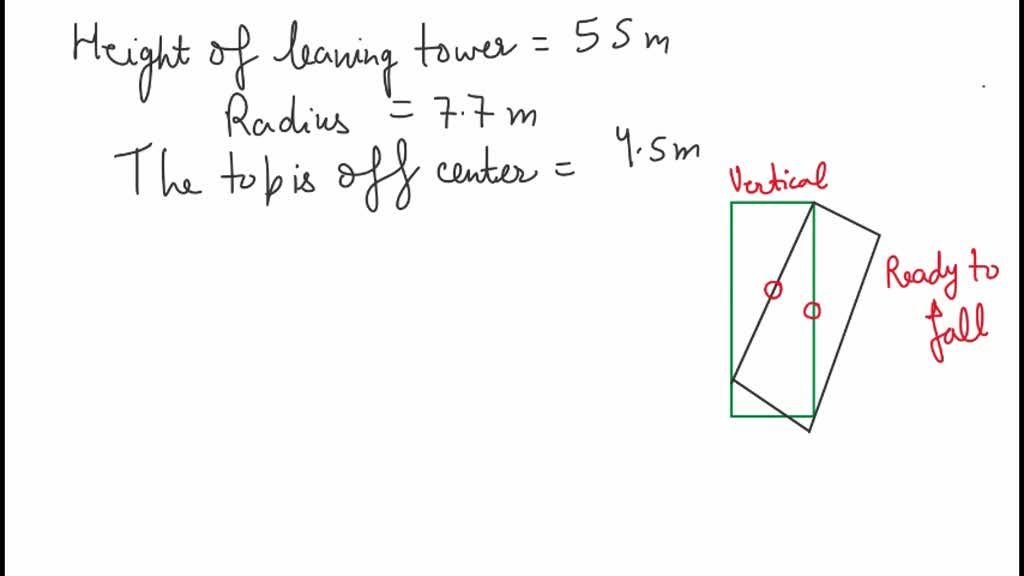 Height of leaning tower = 55 m
Radius = 7.7 m
The top is off center = 4.5m
Vertical
Ready to
fall